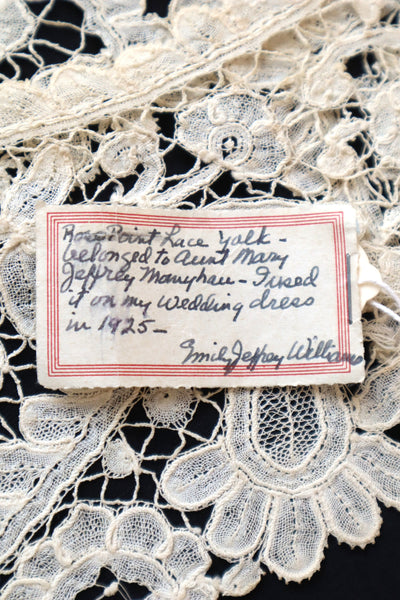 Rose Point Lace Yolk -
belonged to Aunt Mary
Jeffrey Monyhan - I used
it on my wedding dress
in 1925 -
Emily Jeffrey Williams